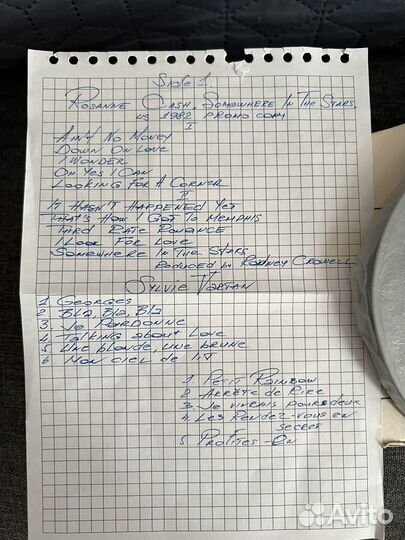 Side 1
Rosanne Cash. Somewhere In The Stars
US 1982 PROMO COPY
I
Ain't No Money
Down On Love
I Wonder
Oh Yes I Can
Looking For A Corner
II
It Hasn't Happened Yet
That's How I Got To Memphis
Third Rate Romance
I Look For Love
Somewhere In The Stars
Produced by Rodney Crowell
Sylvie Vartan
1. Georges
2 Bla, Bla, Bla
3. Je Pardonne
4. Talking about Love
5. Une blonde, une brune
6. Mon ciel de lit
1. Petit Rainbow
2 Arrête de Rire
3. Je vivrais pour deux
4. Les Rendez-vous en
secret
5 Profites-En
Avito